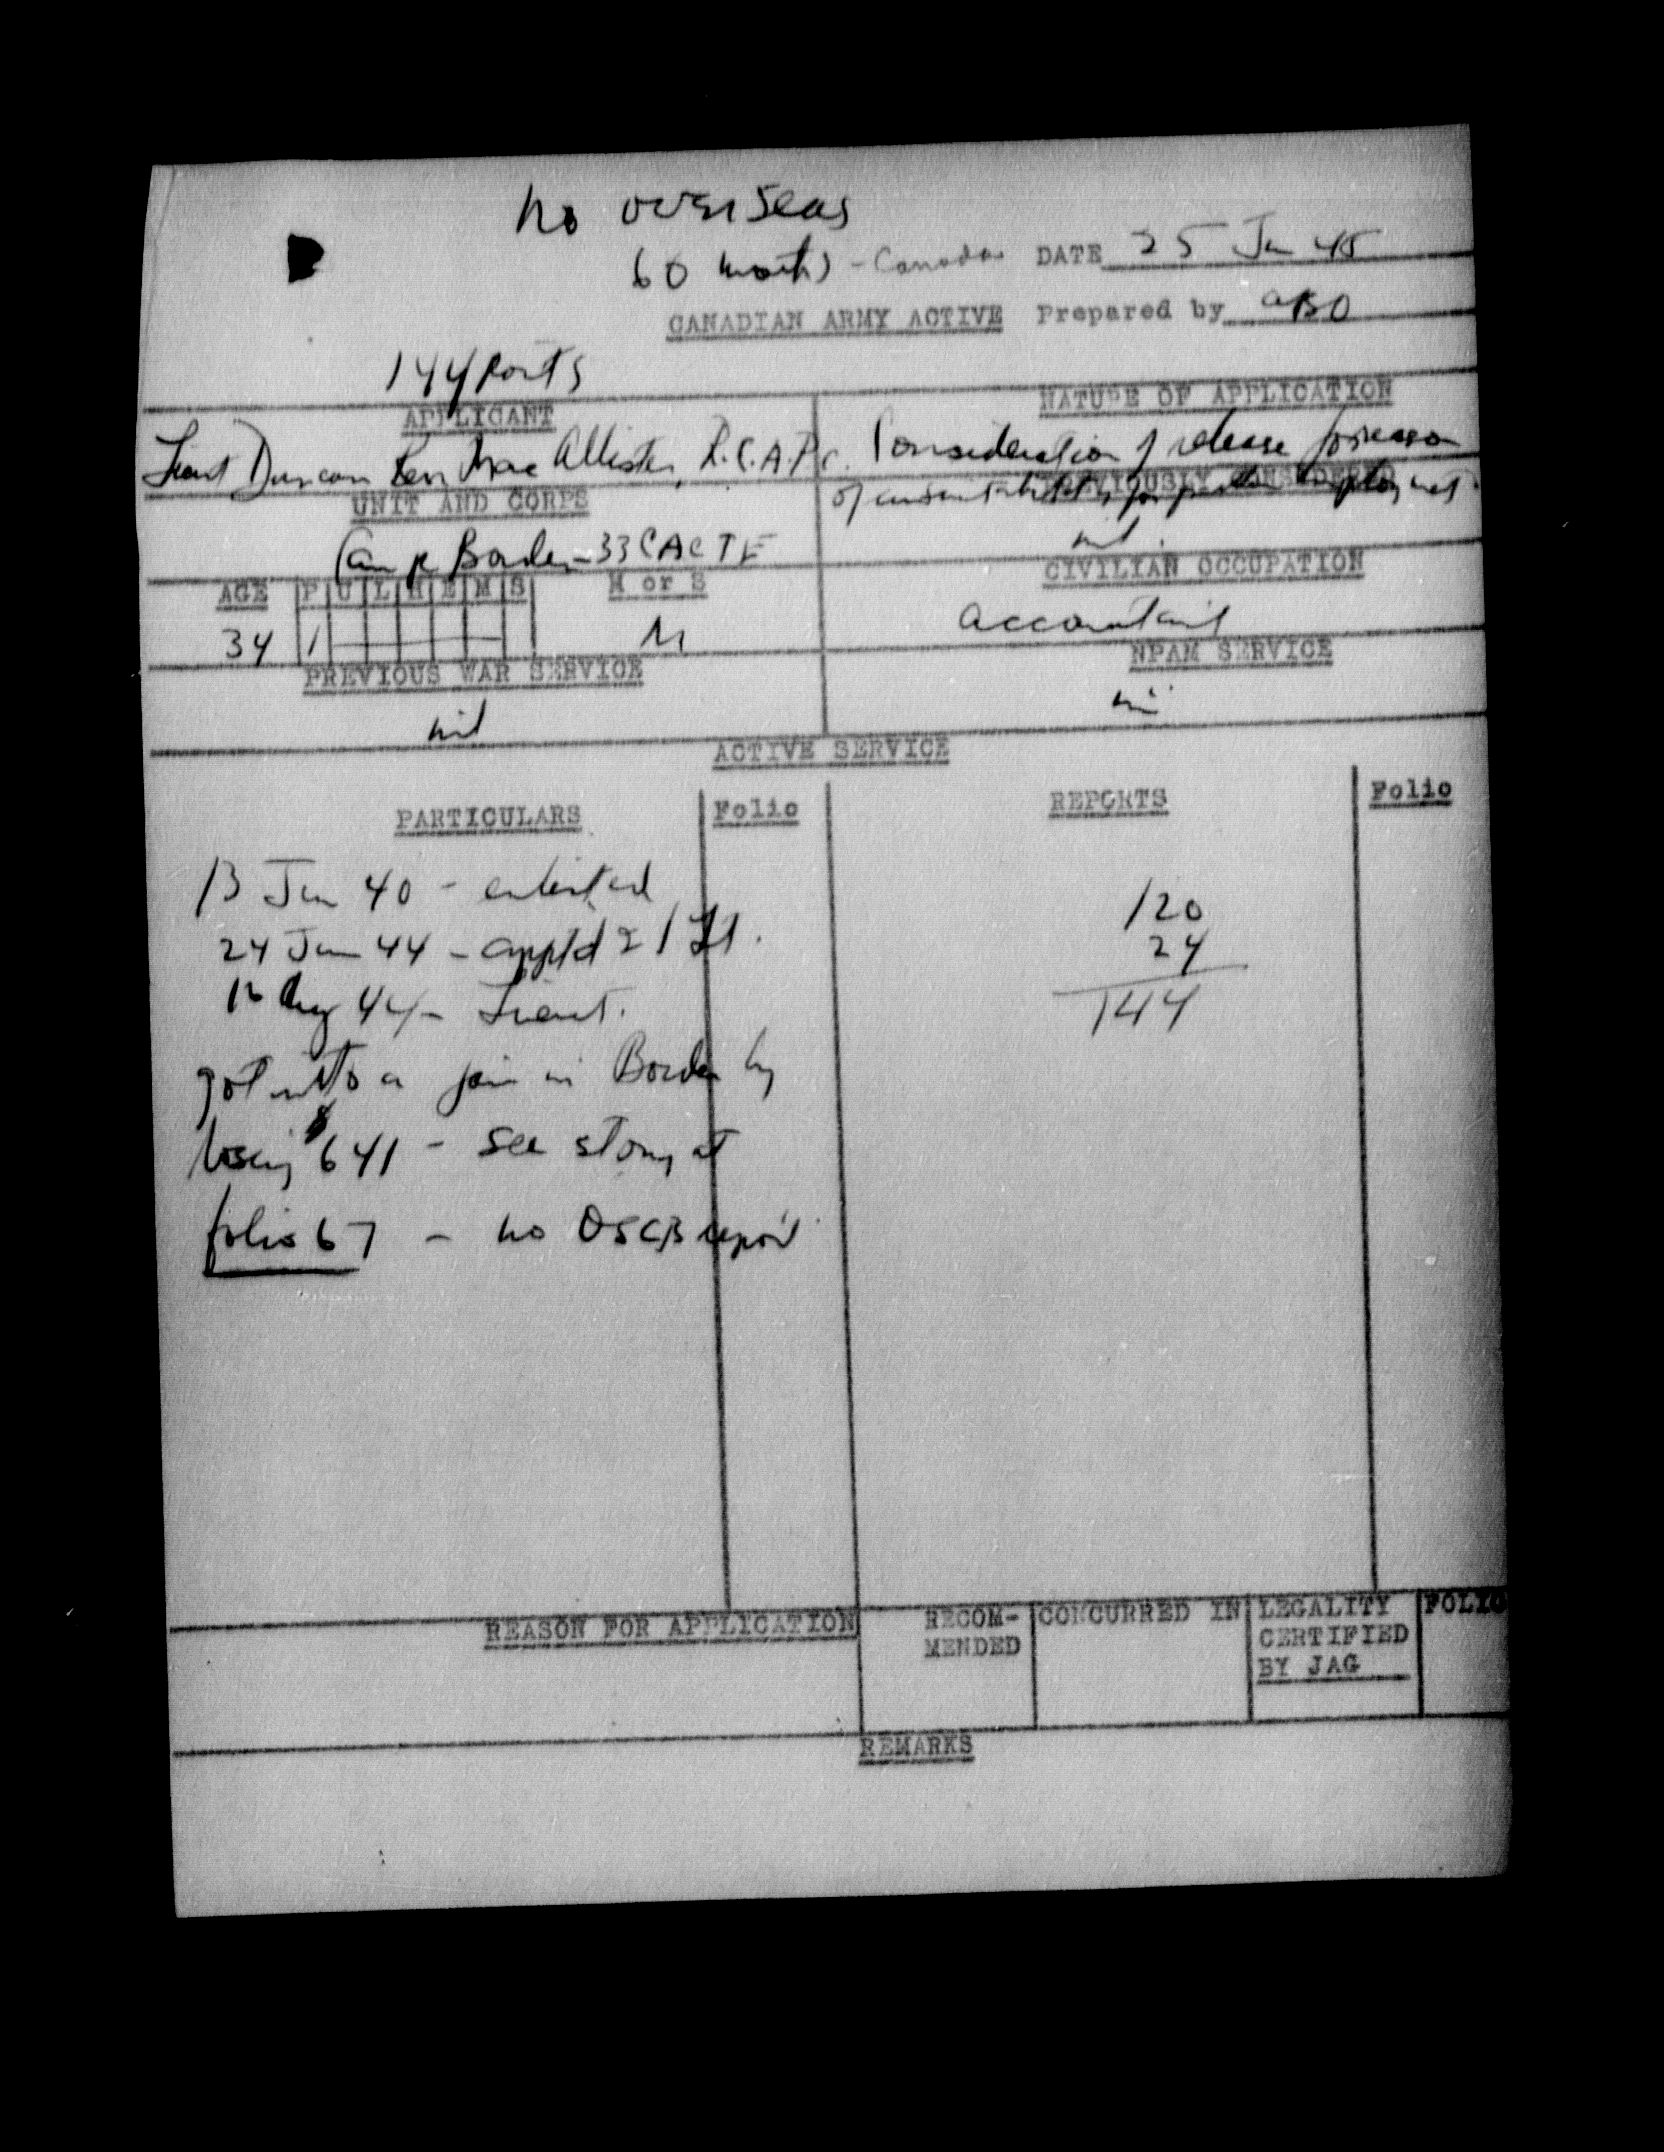 no overseas
60 months - Canada
DATE 25 Jun 45
CANADIAN ARMY ACTIVE Prepared by
144 points
APPLICANT
NATURE OF APPLICATION
Lieut Duncan MacAllister, R.C.A.P.C.
Consideration of release for reason
UNIT AND CORPS
PREVIOUSLY CONSIDERED
of unsuitability for further employment
Camp Borden - 33 CACTE
nil
AGE P U L H E M S M or S
CIVILIAN OCCUPATION
34 1 M
accountant
PREVIOUS WAR SERVICE
NPAM SERVICE
nil
nil
ACTIVE SERVICE
PARTICULARS Folio REPORTS Folio
13 Jun 40 - enlisted
120
24 Jun 44 - apptd 2/Lt.
24
Aug 44 - Lieut.
144
got into a jam in Borden by
losing $641 - see story at
folio 67 - no OSCB report
REASON FOR APPLICATION
RECOM-
MENDED
CONCURRED IN
LEGALITY
CERTIFIED
BY JAG
FOLIO
REMARKS